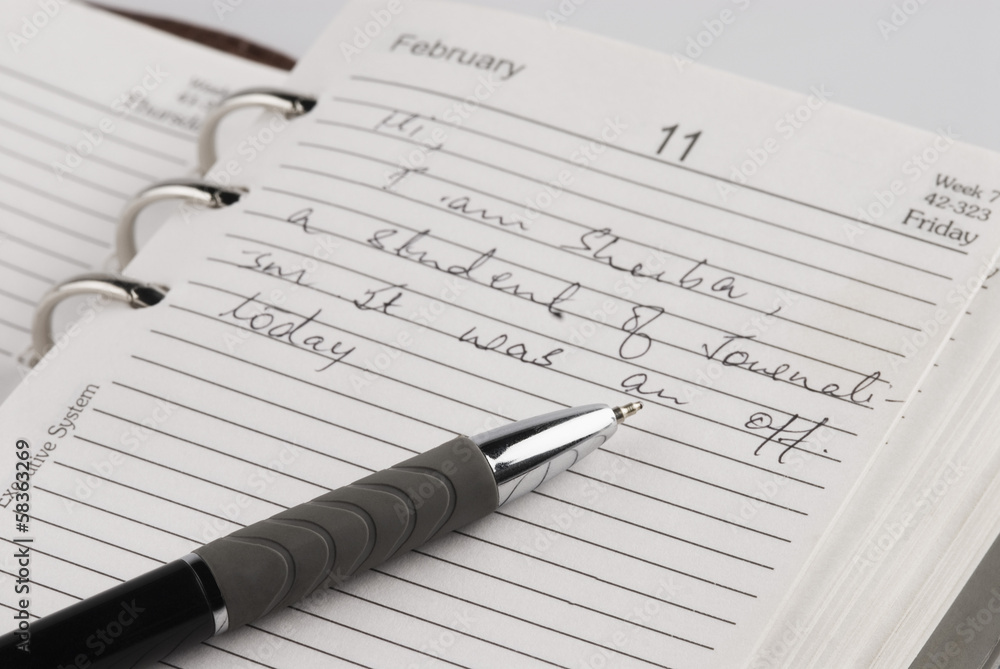 February
11
Week 7
42-323
Friday
Hi,
I am Sheeba,
a student of Journali-
sm It was an off.
today
Executive System
Thursday
Adobe Stock | #58363269